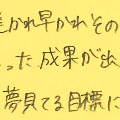 遅かれ早かれその
った成果が出
夢見てる目標に